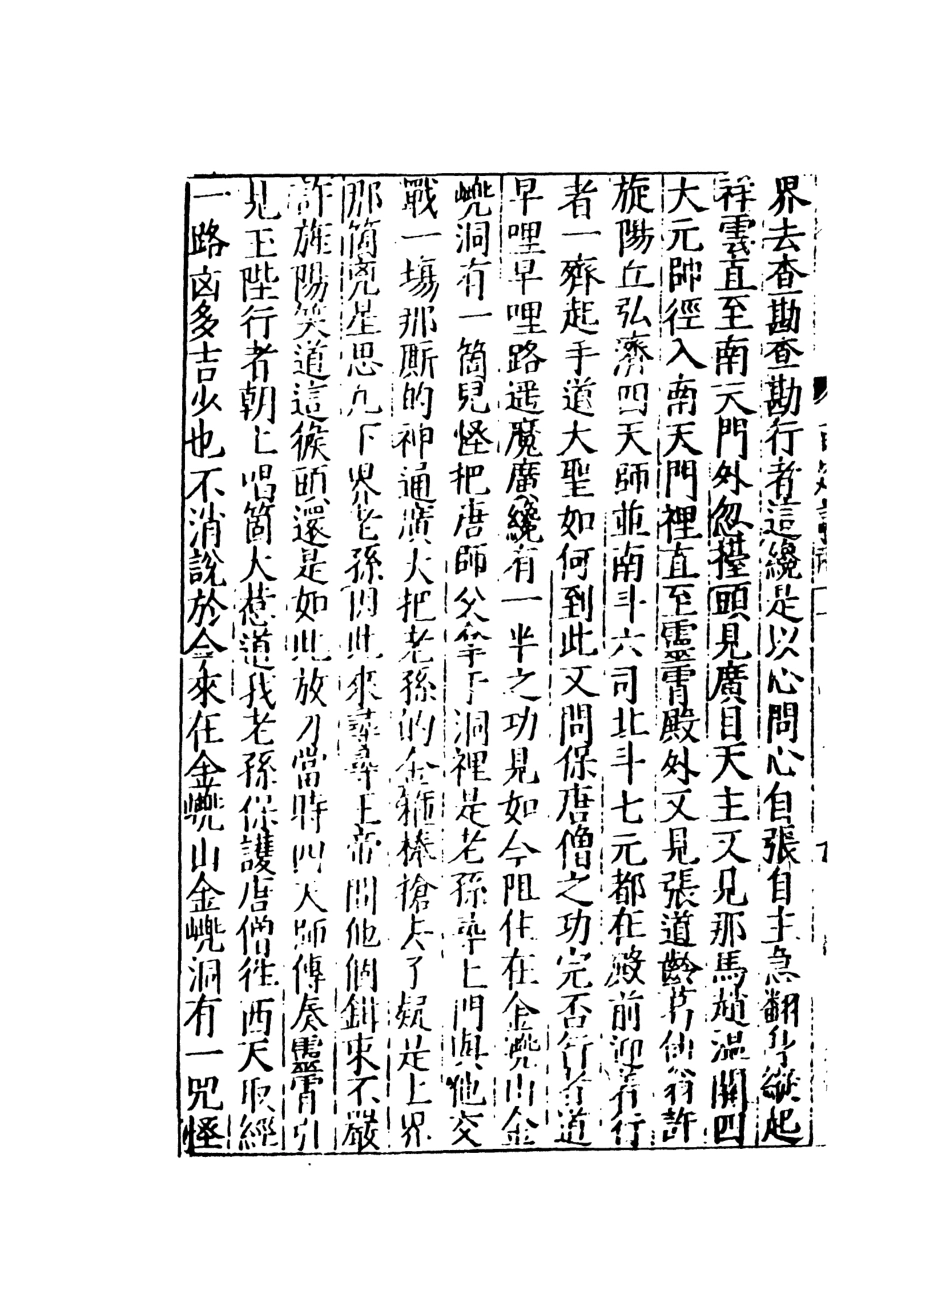 界去查勘查勘行者這纔是以心問心自張自主急翻身縱起
祥雲直至南天門外忽擡頭見廣目天王又見那馬趙溫關四
大元帥徑入南天門裡直至靈霄殿外又見張道齡葛仙翁許
旋陽丘弘濟四天師並南斗六司北斗七元都在殿前迎着行
者一齊起手道大聖如何到此又問保唐僧之功完否行者道
早哩早哩路遥魔廣纔有一半之功見如今阻住在金𠒎山金
𠒎洞有一箇兕怪把唐師父拿于洞裡是老孫尋上門與他交
戰一場那厮的神通廣大把老孫的金箍棒搶去了疑是上界
那箇兇星思凡下界老孫因此來尋尋玉帝問他個鉗束不嚴
許旌陽笑道這猴頭還是如此放刁當時四天師傳奏靈霄引
見玉陛行者朝上唱箇大惹道我老孫保護唐僧徃西天取經
一路凶多吉少也不消說於今來在金𠒎山金𠒎洞有一兕怪